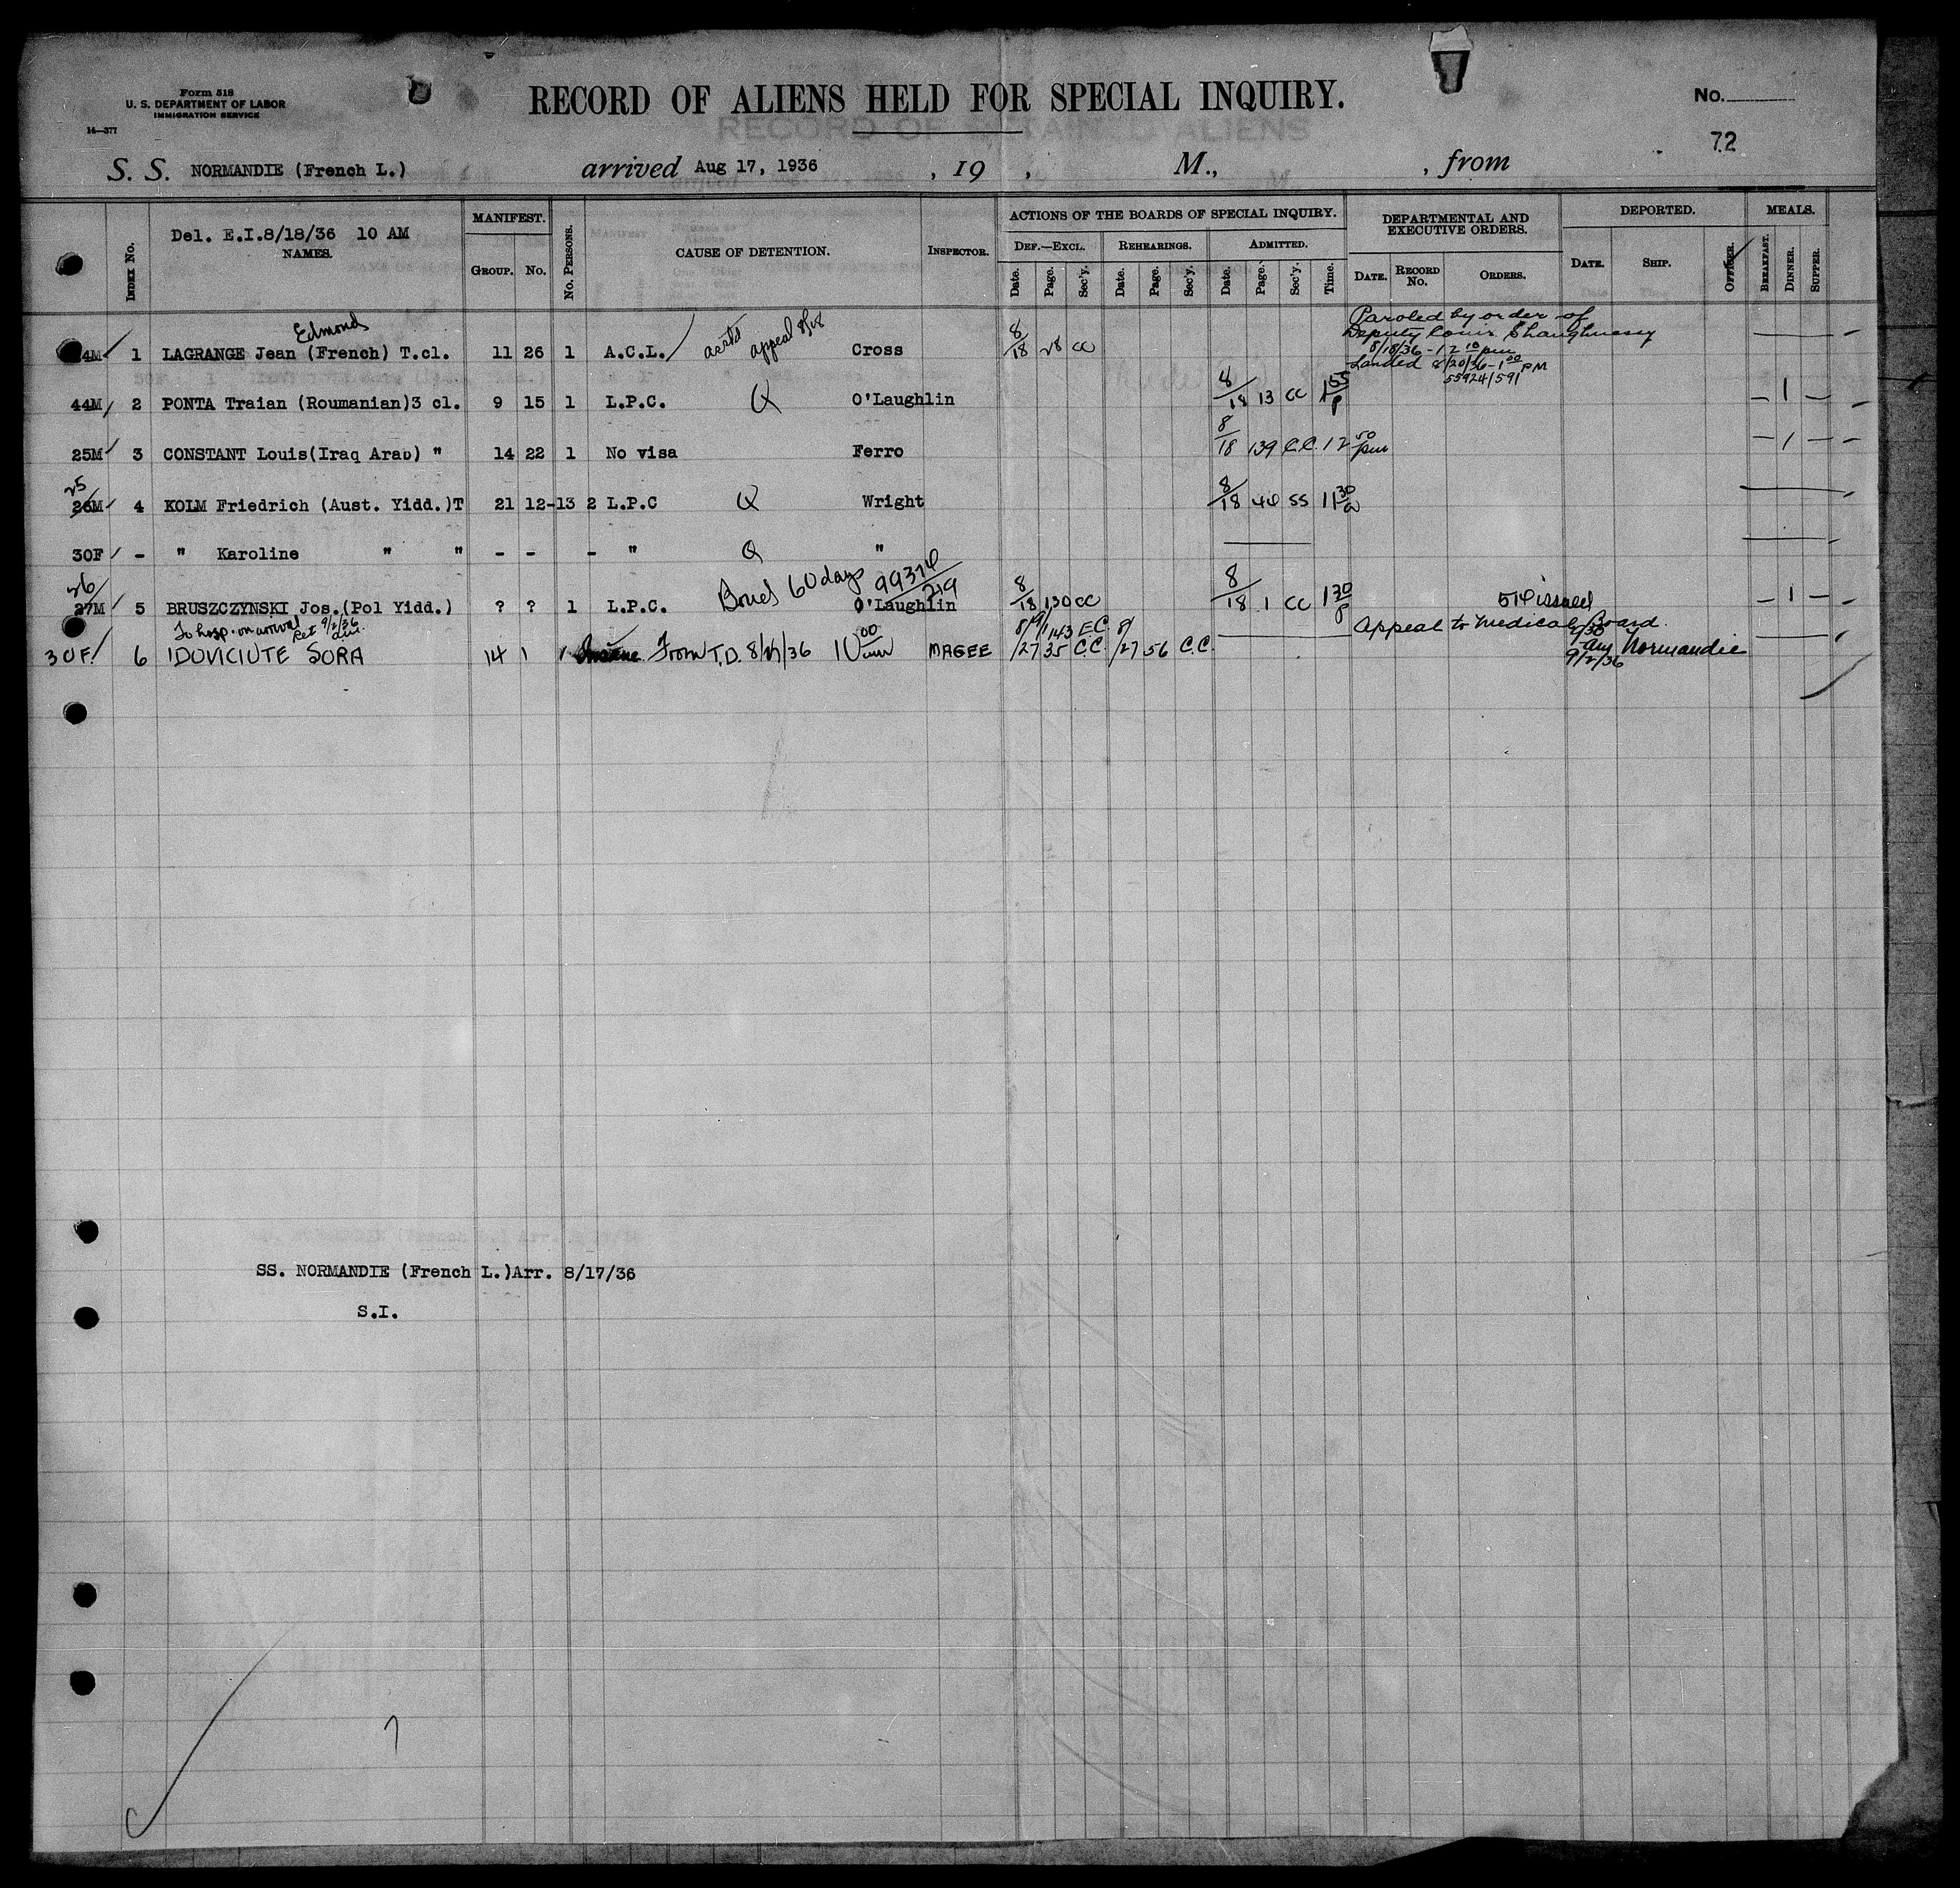 Form 518
U. S. DEPARTMENT OF LABOR
IMMIGRATION SERVICE
14—377
RECORD OF ALIENS HELD FOR SPECIAL INQUIRY.
No.
72
S. S. NORMANDIE (French L.) arrived Aug 17, 1936 , 19 , M., , from
Index No. Del. E.I.8/18/36 10 AM NAMES. MANIFEST. Group. No. No. Persons. CAUSE OF DETENTION. Inspector. ACTIONS OF THE BOARDS OF SPECIAL INQUIRY. Def.—Excl. Date. Page. Sec'y. Rehearings. Date. Page. Sec'y. Admitted. Date. Page. Sec'y. Time. DEPARTMENTAL AND EXECUTIVE ORDERS. Date. Record No. Orders. DEPORTED. Date. Ship. Officer. MEALS. Breakfast. Dinner. Supper.
Edmond
4M 1 LAGRANGE Jean (French) T.cl. 11 26 1 A.C.L. appeal 8/18 Cross 8/18 28 CC Paroled by order of
Deputy Shaughnessy
8/18/36 - 12 10 pm
Landed 8/20/36 - 1 00 PM
55924/591
44M 2 PONTA Traian (Roumanian)3 cl. 9 15 1 L.P.C. Q O'Laughlin 8/18 13 CC 1 55 P — 1 —
25M 3 CONSTANT Louis(Iraq Arab) " 14 22 1 No visa Ferro 8/18 139 C.C. 12 50 pm — 1 —
25
26M 4 KOLM Friedrich (Aust. Yidd.)T 21 12-13 2 L.P.C Q Wright 8/18 44 SS 11 30 a
30F - " Karoline " " - - - " Q "
Bond 60 days 99374/219
26
27M 5 BRUSZCZYNSKI Jos.(Pol Yidd.) ? ? 1 L.P.C. O'Laughlin 8/18 130 CC 8/18 1 CC 1 30 P 514 issued — 1 —
To hosp. on arrival Ret 9/2/36
8/19 143 E.C. Appeal to Medical Board
30F 6 IDOVICIUTE SORA 14 1 1 Insane From T.D. 8/19/36 10 00 am MAGEE 8/27 35 C.C. 8/27 56 C.C. 9/2/36 Normandie
SS. NORMANDIE (French L.)Arr. 8/17/36
S.I.
7